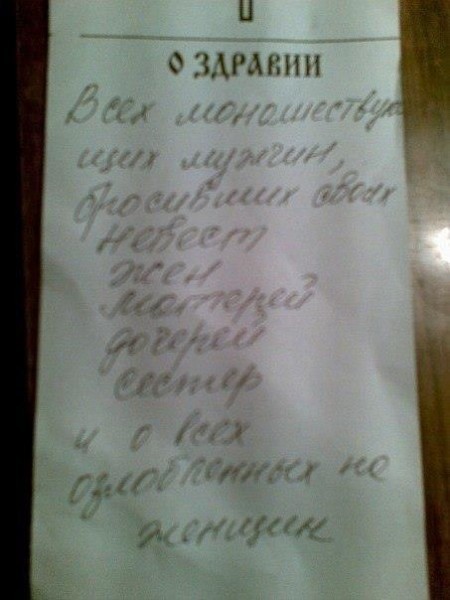 О ЗДРАВИИ
Всех моношествую
щих мужчин,
бросивших своих
невест
жен
маттерей
дочерей
сестер
и о всех
озлобленных на
женщин